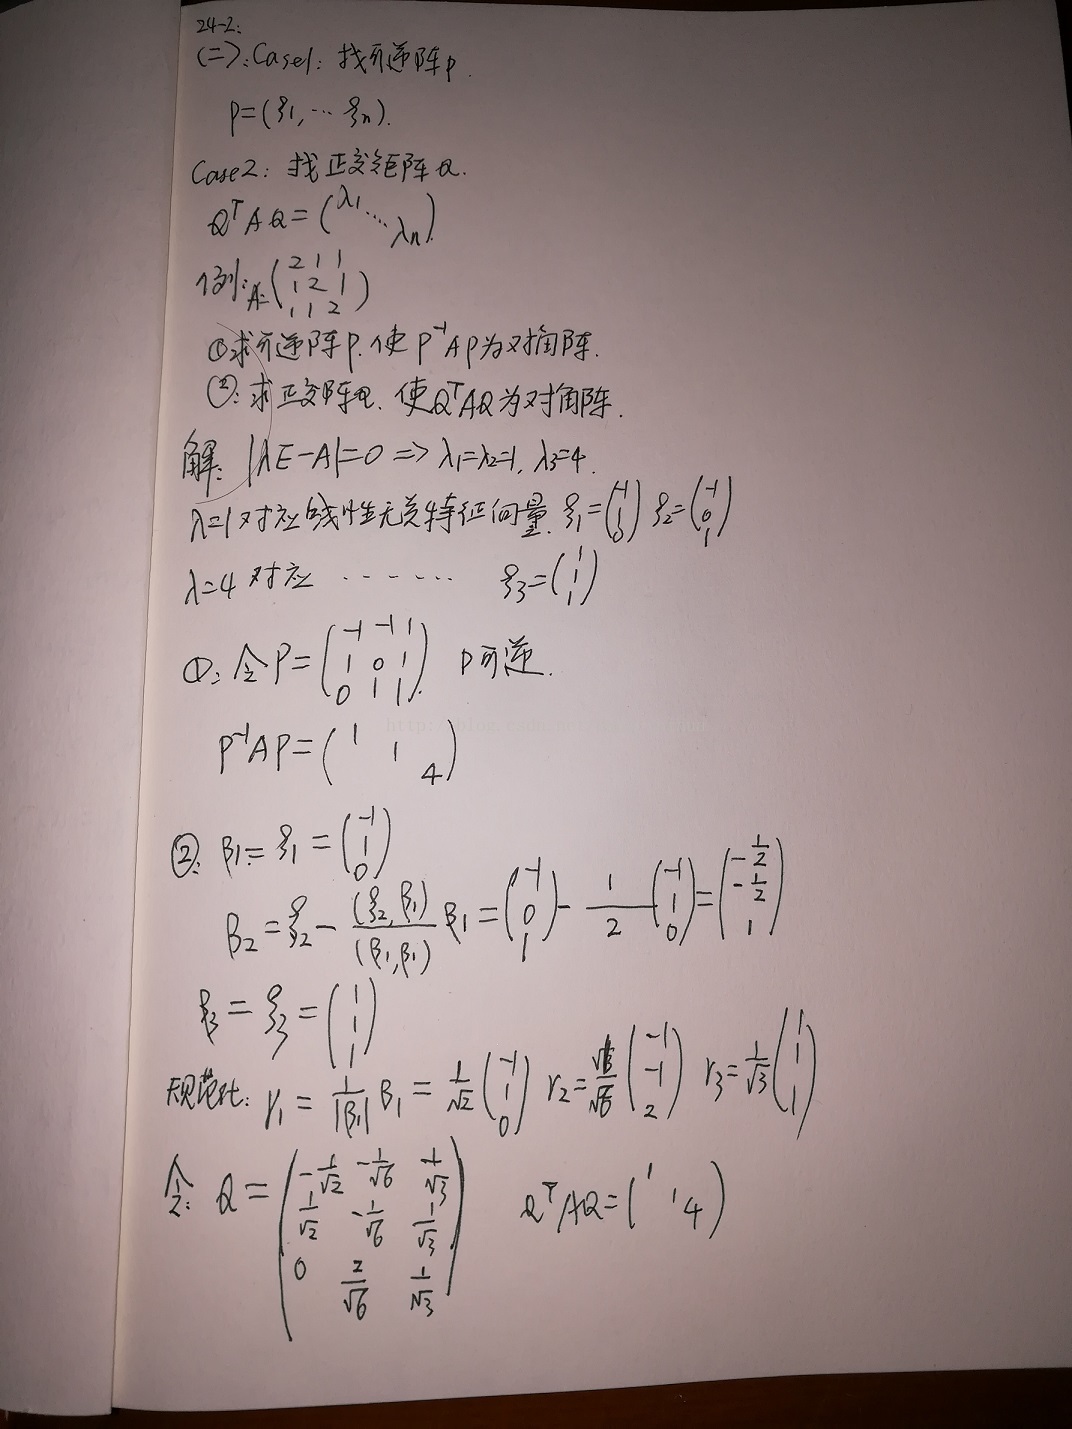 24-2:
(二):Case1: 找可逆阵P.
P=(ξ1,…ξn).
Case2: 找正交矩阵Q.
QᵀAQ=(λ1 ⋱ λn).
例:A=(2 1 1
1 2 1
1 1 2)
①求可逆阵P.使P⁻¹AP为对角阵.
②:求正交阵Q.使QᵀAQ为对角阵.
解: |λE-A|=0 => λ1=λ2=1, λ3=4.
λ=1对应的线性无关特征向量. ξ1=(-1 1 0) ξ2=(-1 0 1)
λ=4对应 ------- ξ3=(1 1 1)
①:令P=(-1 -1 1
1 0 1
0 1 1). P可逆.
P⁻¹AP=(1 1 4)
②: β1=ξ1=(-1 1 0)
β2=ξ2-(ξ2,β1)/(β1,β1) β1=(-1 0 1)-1/2(-1 1 0)=(-1/2 -1/2 1)
β3=ξ3=(1 1 1)
规范化: γ1=1/|β1| β1=1/√2(-1 1 0) γ2=/√6(-1 -1 2) γ3=1/√3(1 1 1)
令: Q=(-1/√2 -1/√6 1/√3
1/√2 -1/√6 1/√3
0 2/√6 1/√3) QᵀAQ=(1 1 4)